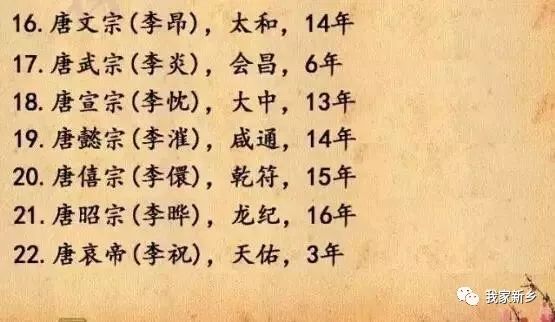 16. 唐文宗(李昂)，太和，14年
17. 唐武宗(李炎)，会昌，6年
18. 唐宣宗(李忱)，大中，13年
19. 唐懿宗(李漼)，咸通，14年
20. 唐僖宗(李儇)，乾符，15年
21. 唐昭宗(李晔)，龙纪，16年
22. 唐哀帝(李祝)，天佑，3年
我家新乡